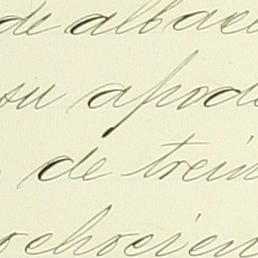 de albace
su apode
de trein
ochocien